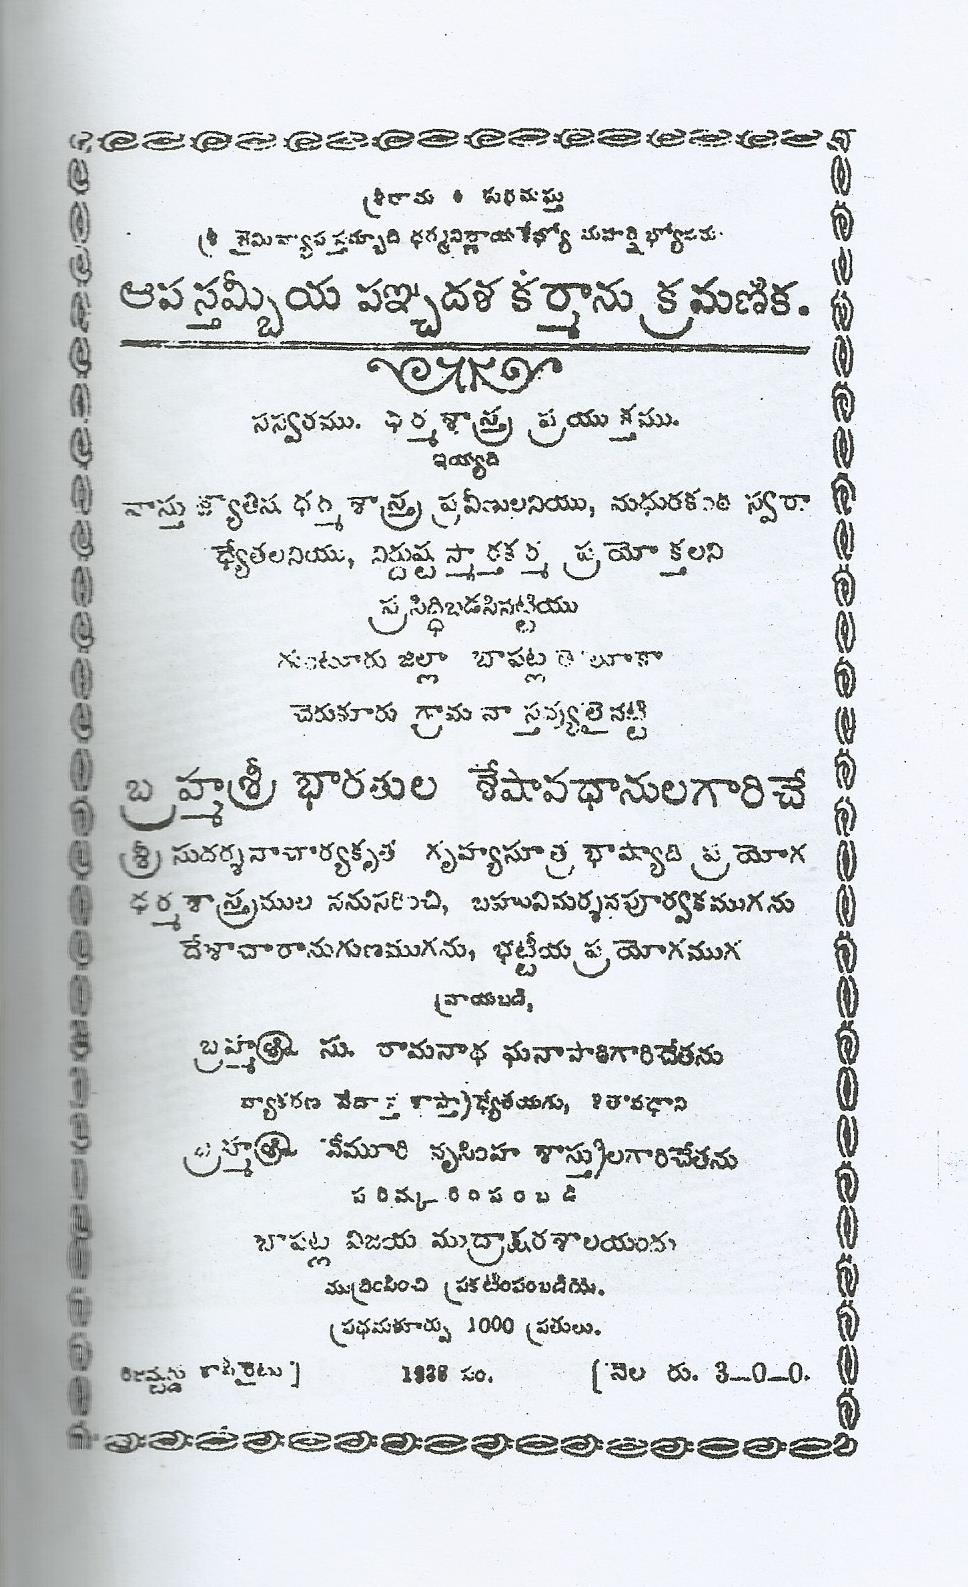 శ్రీరామ
శ్రీ జైమివ్యాప స్తమ్బాది ధర్మనిర్ణాయకేభ్యో మహర్షిభ్యోనమః
ఆపస్తమ్బీయ పఞ్చదశ కర్మాను క్రమణిక.
సస్వరము. ధర్మశాస్త్ర ప్రయుక్తము.
ఇయ్యది
వాస్తు జ్యోతిష ధర్మ శాస్త్ర ప్రవీణులనియు, మధురకంఠ స్వరా
ధ్యేతలనియు, నిర్దుష్ట స్మార్తకర్మ ప్రయోక్తలని
ప్రసిద్ధిబడసినట్టియు
గుంటూరు జిల్లా బాపట్ల తాలూకా
చెరుకూరు గ్రామ వాస్తవ్యులైనట్టి
బ్రహ్మశ్రీ భారతుల శేషావధానులగారిచే
శ్రీ సుదర్శనాచార్యకృత గృహ్యసూత్ర భాష్యాది ప్రయోగ
ధర్మశాస్త్రముల ననుసరించి, బహువిమర్శనపూర్వకముగను
దేశాచారానుగుణముగను, భట్టీయ ప్రయోగముగ
వ్రాయబడి,
బ్రహ్మశ్రీ సు. రామనాథ ఘనాపాఠిగారిచేతను
వ్యాకరణ వేదాన్త శాస్త్రాధ్యేతయగు, శతావధాని
బ్రహ్మశ్రీ వేమూరి నృసింహ శాస్త్రులగారిచేతను
పరిష్కరింపంబడి
బాపట్ల విజయ ముద్రాక్షరశాలయందు
ముద్రించి ప్రకటింపంబడియె.
ప్రథమకూర్పు 1000 ప్రతులు.
రిజిష్టర్డు కాపీరైటు ] 1938 సం. [ వెల రు. 3_0_0.